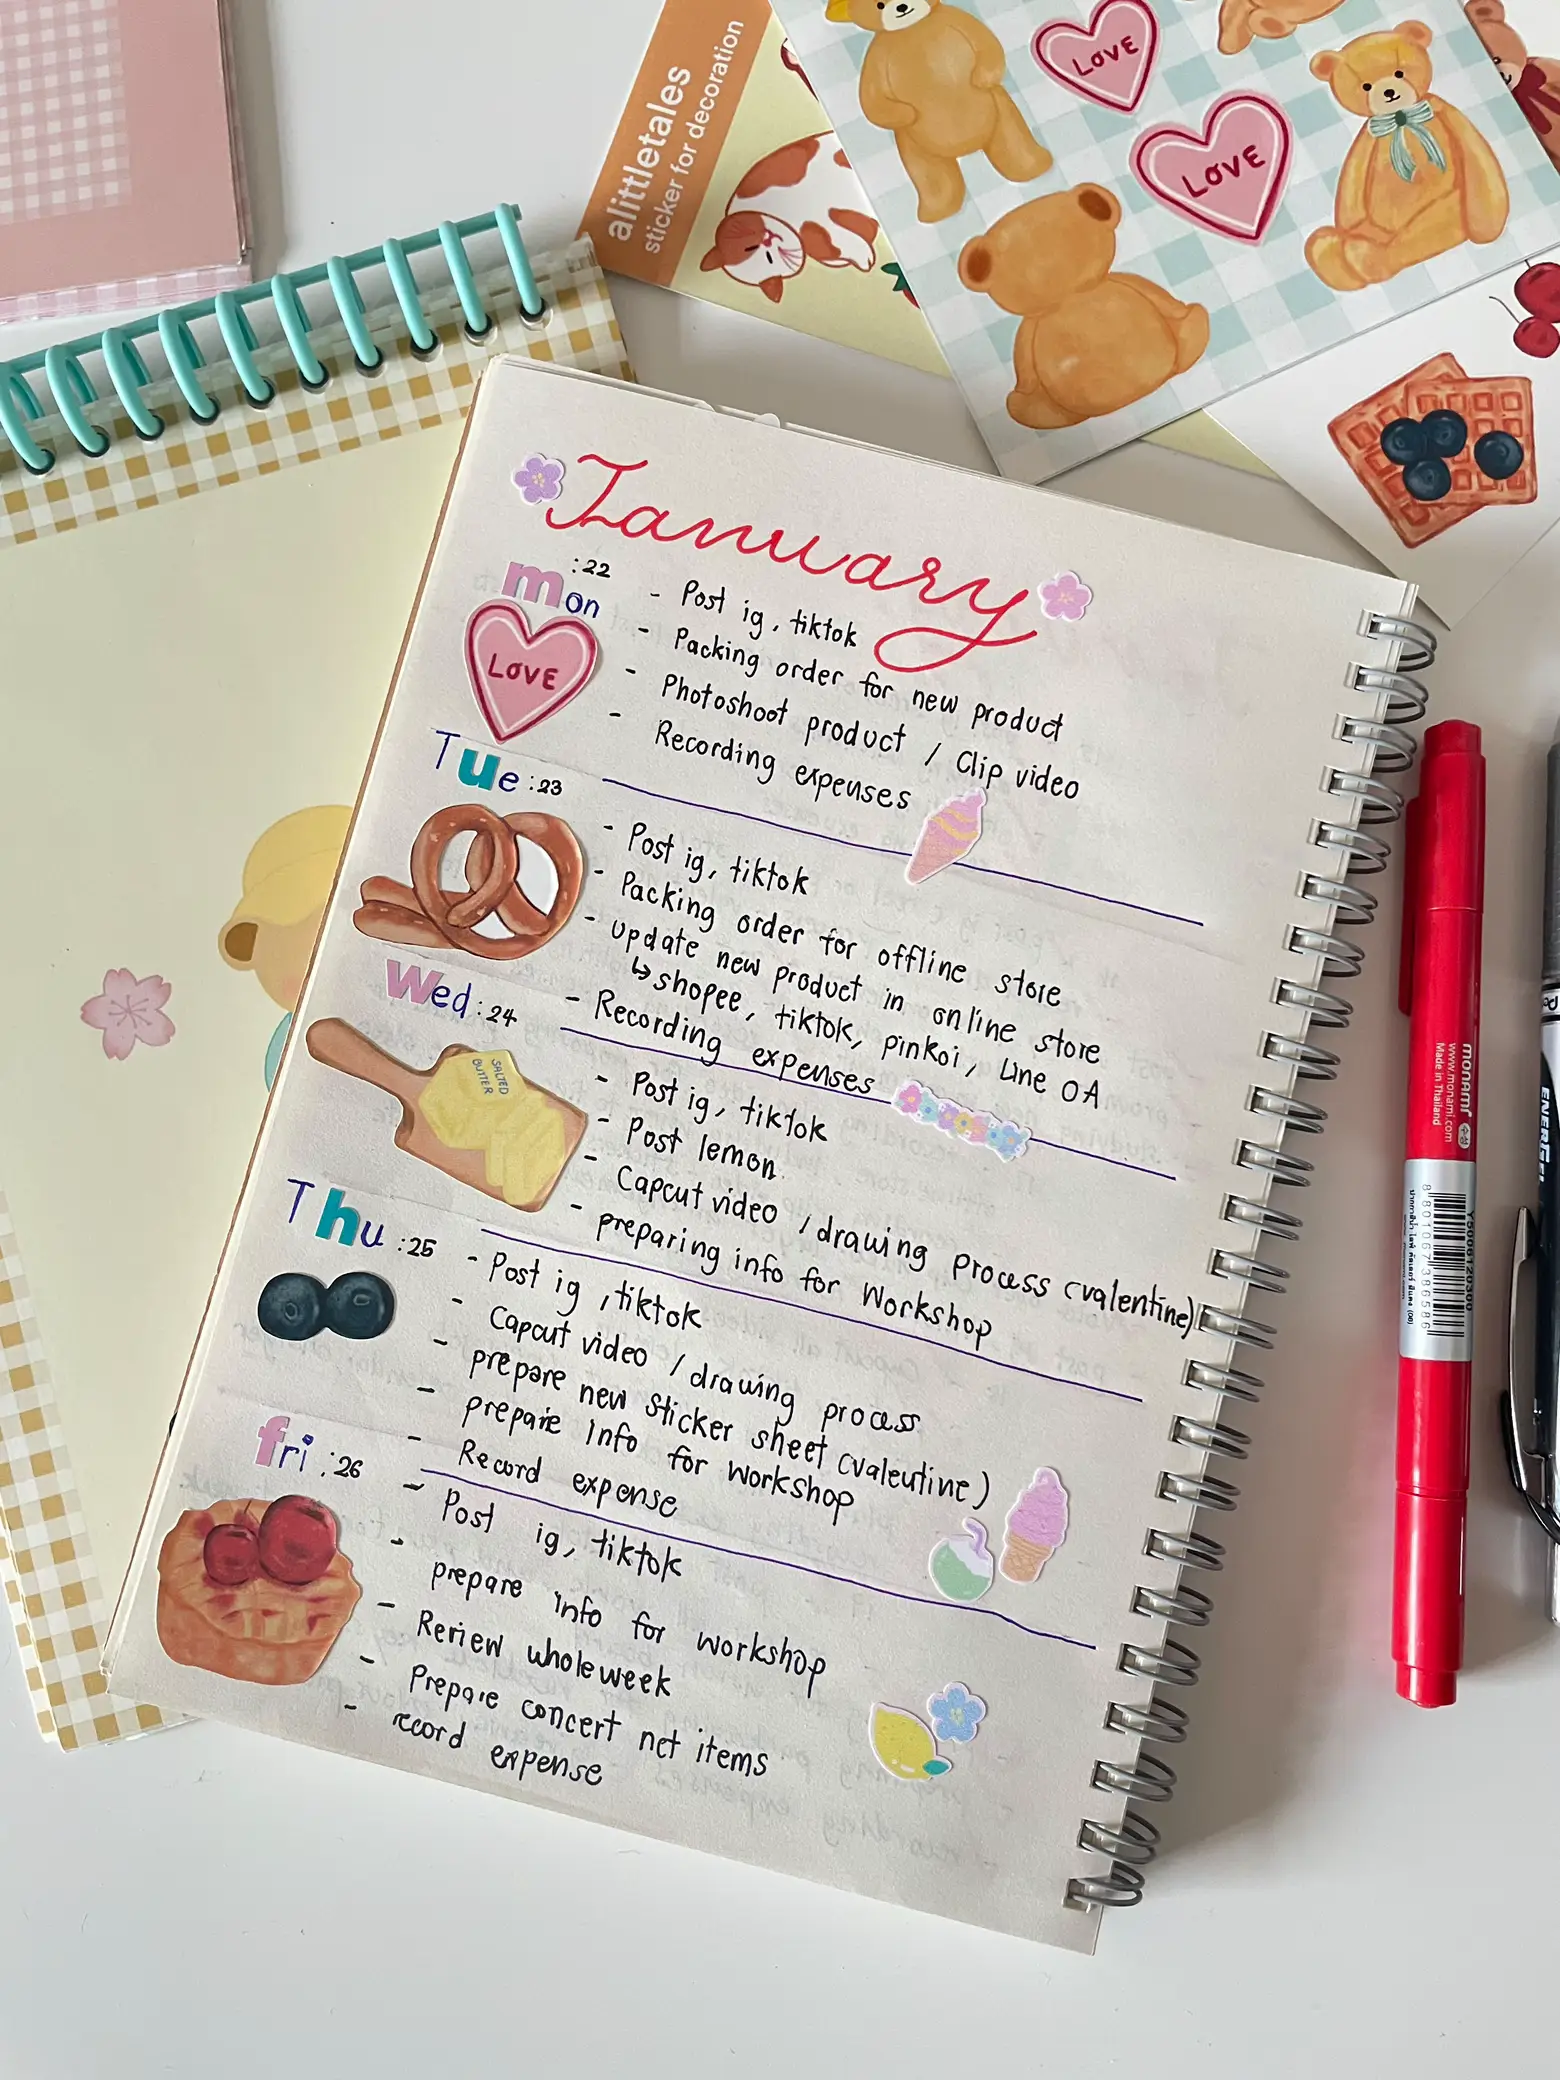 alittletales
sticker for decoration
LOVE
LOVE
January
mon :22
- Post ig, tiktok
- Packing order for new product
- Photoshoot product / Clip video
- Recording expenses
LOVE
Tue :23
- Post ig, tiktok
- Packing order for offline store
- update new product in online store
↳ shopee, tiktok, pinkoi, Line OA
- Recording expenses
Wed :24
SALTED
BUTTER
- Post ig, tiktok
- Post lemon
- Capcut video / drawing process (valentine)
- preparing info for Workshop
Thu :25
- Post ig, tiktok
- Capcut video / drawing process
- prepare new Sticker sheet (valeutine)
- prepare Info for workshop
- Record expense
fri :26
- Post ig, tiktok
- prepare info for workshop
- Review wholeweek
- Prepare concert net items
- record expense
monami
www.monami.com
Made in Thailand
8801067386586
ENERGEL